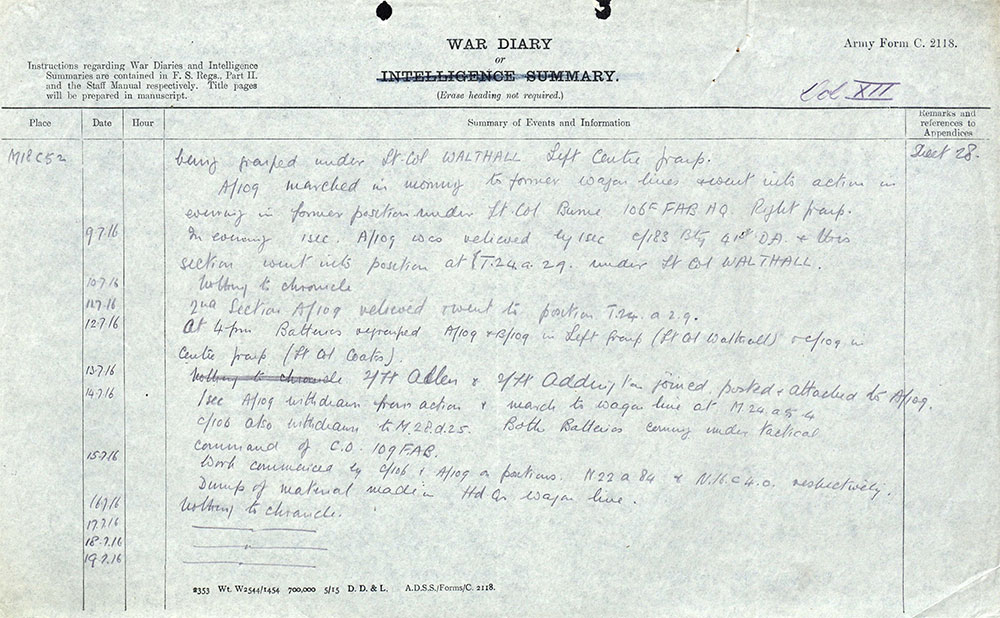 WAR DIARY
or
INTELLIGENCE SUMMARY.
(Erase heading not required.)
Army Form C. 2118.
Instructions regarding War Diaries and Intelligence
Summaries are contained in F. S. Regs., Part II.
and the Staff Manual respectively. Title pages
will be prepared in manuscript.
Vol XII
Place
Date
Hour
Summary of Events and Information
Remarks and
references to
Appendices
M18C52
being grouped under Lt. Col WALTHALL Left Centre group.
Sheet 28.
A/109 marched in morning to former wagon lines & went into action in
evening in former position under Lt. Col Burne 106 FAB HQ Right group.
9.7.16
In evening 1 sec. A/109 was relieved by 1 sec C/183 Bty 41st DA. & this
section went into position at T.24.a.29. under Lt Col WALTHALL.
10.7.16
Nothing to chronicle
11.7.16
2nd Section A/109 relieved & went to position T.24. a 29.
12.7.16
At 4 pm Batteries regrouped A/109 & B/109 in Left Group (Lt Col Walthall) & C/109 in
Centre group (Lt Col Coates).
13.7.16
Nothing to chronicle 2/Lt Allen & 2/Lt Addington joined posted & attached to A/109.
14.7.16
1 sec A/109 withdrawn from action & march to wagon line at M.24.a.5-4
C/106 also withdrawn to M.28.d.25. Both Batteries coming under tactical
command of C.O. 109 FAB.
15.7.16
Work commenced by C/106 & A/109 on positions. N22 a 84 & N.16.c 4.0. respectively.
Dump of material made in Hd Qr wagon line.
16.7.16
Nothing to chronicle.
17.7.16
18.7.16
"
19.7.16
"
2353 Wt. W2544/1454 700,000 5/15 D. D. & L. A.D.S.S./Forms/C. 2118.